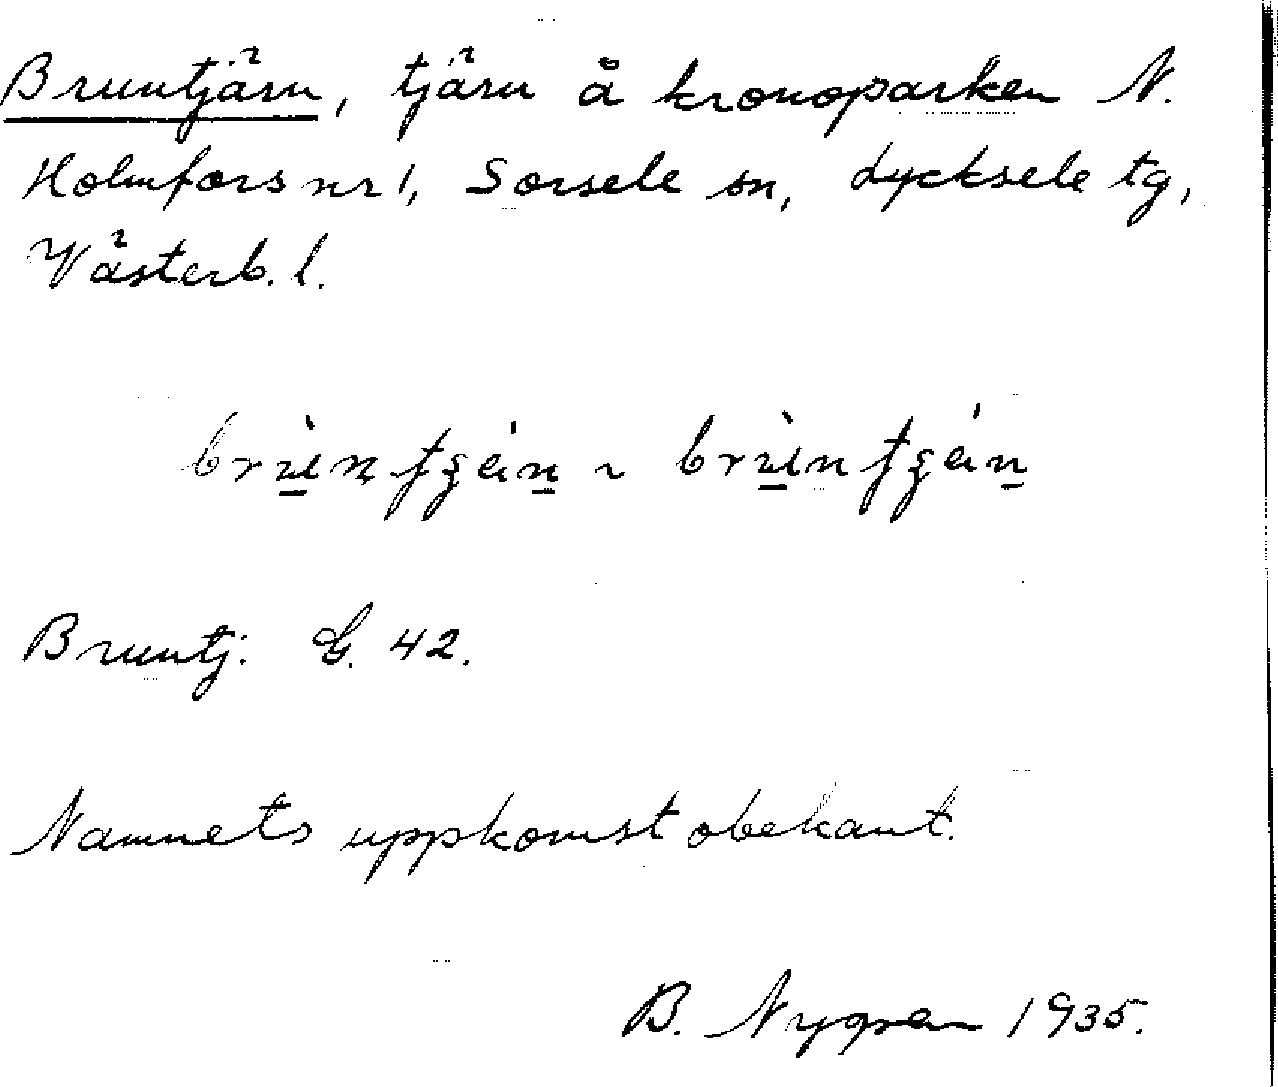 Bruntjärn, tjärn å kronoparken N.
Holmfors nr 1, Sorsele sn, Lycksele tg,
Västerb. l.
Bruntj. G. 42.
Namnets uppkomst obekant.
B. Nygren 1935.